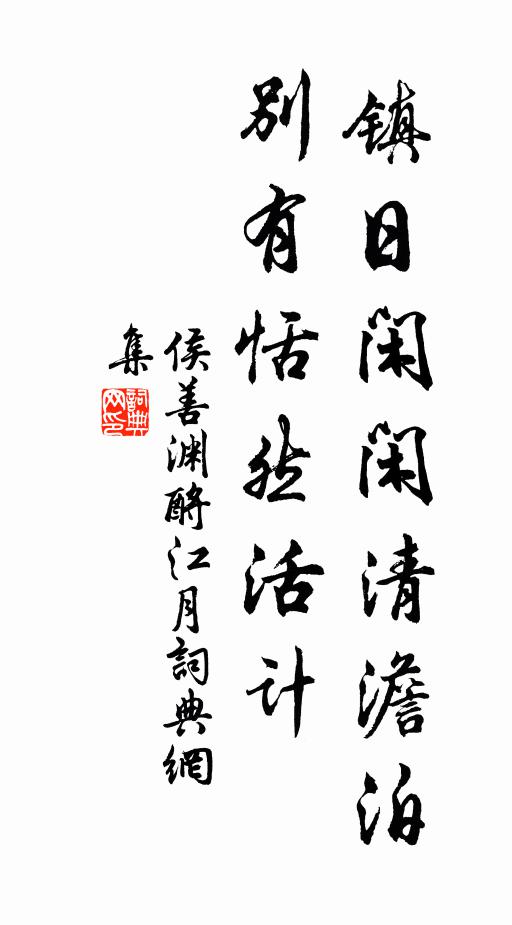 镇日闲闲清澹泊
别有恬然活计
侯善渊酹江月詞典網
集
詞典
网印